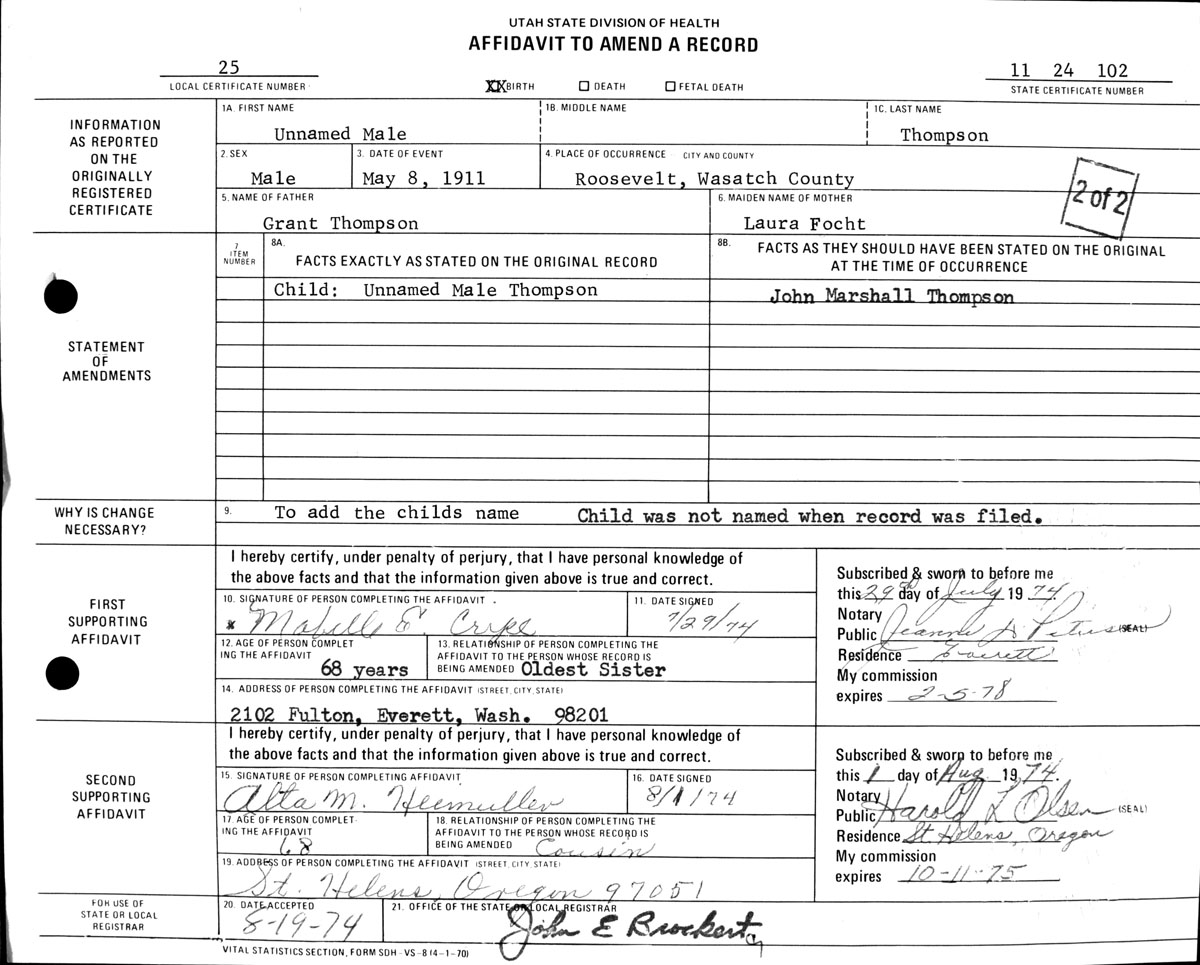 UTAH STATE DIVISION OF HEALTH
AFFIDAVIT TO AMEND A RECORD
25
LOCAL CERTIFICATE NUMBER
XX BIRTH ☐ DEATH ☐ FETAL DEATH
11 24 102
STATE CERTIFICATE NUMBER
INFORMATION
AS REPORTED
ON THE
ORIGINALLY
REGISTERED
CERTIFICATE
1A. FIRST NAME
Unnamed Male
1B. MIDDLE NAME
1C. LAST NAME
Thompson
2. SEX
Male
3. DATE OF EVENT
May 8, 1911
4. PLACE OF OCCURRENCE - CITY AND COUNTY
Roosevelt, Wasatch County
2 of 2
5. NAME OF FATHER
Grant Thompson
6. MAIDEN NAME OF MOTHER
Laura Focht
STATEMENT
OF
AMENDMENTS
7
ITEM
NUMBER
8A.
FACTS EXACTLY AS STATED ON THE ORIGINAL RECORD
8B.
FACTS AS THEY SHOULD HAVE BEEN STATED ON THE ORIGINAL
AT THE TIME OF OCCURRENCE
Child: Unnamed Male Thompson
John Marshall Thompson
WHY IS CHANGE
NECESSARY?
9.
To add the childs name Child was not named when record was filed.
FIRST
SUPPORTING
AFFIDAVIT
I hereby certify, under penalty of perjury, that I have personal knowledge of
the above facts and that the information given above is true and correct.
10. SIGNATURE OF PERSON COMPLETING THE AFFIDAVIT
x Mabelle E. Cripe
11. DATE SIGNED
7/29/74
12. AGE OF PERSON COMPLET
ING THE AFFIDAVIT
68 years
13. RELATIONSHIP OF PERSON COMPLETING THE
AFFIDAVIT TO THE PERSON WHOSE RECORD IS
BEING AMENDED Oldest Sister
14. ADDRESS OF PERSON COMPLETING THE AFFIDAVIT (STREET, CITY, STATE)
2102 Fulton, Everett, Wash. 98201
Subscribed & sworn to before me
this 29th day of July 19 74
Notary
Public Jeanne (SEAL)
Residence Everett
My commission
expires 2-5-78
SECOND
SUPPORTING
AFFIDAVIT
I hereby certify, under penalty of perjury, that I have personal knowledge of
the above facts and that the information given above is true and correct.
15. SIGNATURE OF PERSON COMPLETING AFFIDAVIT
Alta M. Heimuller
16. DATE SIGNED
8/1/74
17. AGE OF PERSON COMPLET-
ING THE AFFIDAVIT
68
18. RELATIONSHIP OF PERSON COMPLETING THE
AFFIDAVIT TO THE PERSON WHOSE RECORD IS
BEING AMENDED Cousin
19. ADDRESS OF PERSON COMPLETING THE AFFIDAVIT (STREET, CITY, STATE)
St. Helens, Oregon 97051
Subscribed & sworn to before me
this 1 day of Aug. 19 74.
Notary
Public Harold L Olsen (SEAL)
Residence St. Helens, Oregon
My commission
expires 10-11-75
FOR USE OF
STATE OR LOCAL
REGISTRAR
20. DATE ACCEPTED
8-19-74
21. OFFICE OF THE STATE OR LOCAL REGISTRAR
John E Brockert
VITAL STATISTICS SECTION, FORM SDH-VS-8 (4-1-70)